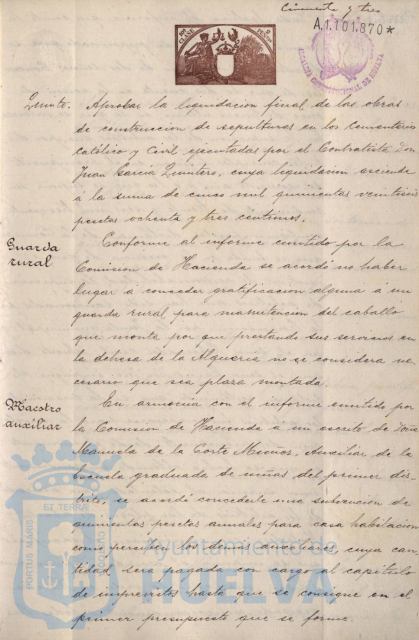 Cincuenta y tres
A.1.101.870*
Quinto. Aprobar la liquidación final de las obras
de construcción de sepulturas en los Cementerios
católico y Civil ejecutadas por el Contratista Don
Juan García Quintero, cuya liquidación asciende
á la suma de cinco mil quinientas veintiseis
pesetas ochenta y tres centimos.
Guarda
rural
Conforme al informe emitido por la
Comision de Hacienda se acordó no haber
lugar á conceder gratificacion alguna á un
guarda rural, para manutencion del caballo
que monta por que prestando sus servicios en
la dehesa de la Alqueria no se considera ne
cesario que sea plaza montada.
Maestro
auxiliar
En armonia con el informe emitido por
la Comision de Hacienda á un escrito de Doña
Manuela de la Corte Auxiliar de la
Escuela graduada de niñas del primer dis-
trito, se acordó concederle una subvención de
quinientas pesetas anuales para casa habitación
como perciben los demás cuya can-
tidad será pagada con cargo al capítulo
de imprevistos hasta que se consigne en el
primer presupuesto que se forme.
PORTUS MARIS
ET TERRÆ
CUSTODIA
Ayuntamiento de
HUELVA